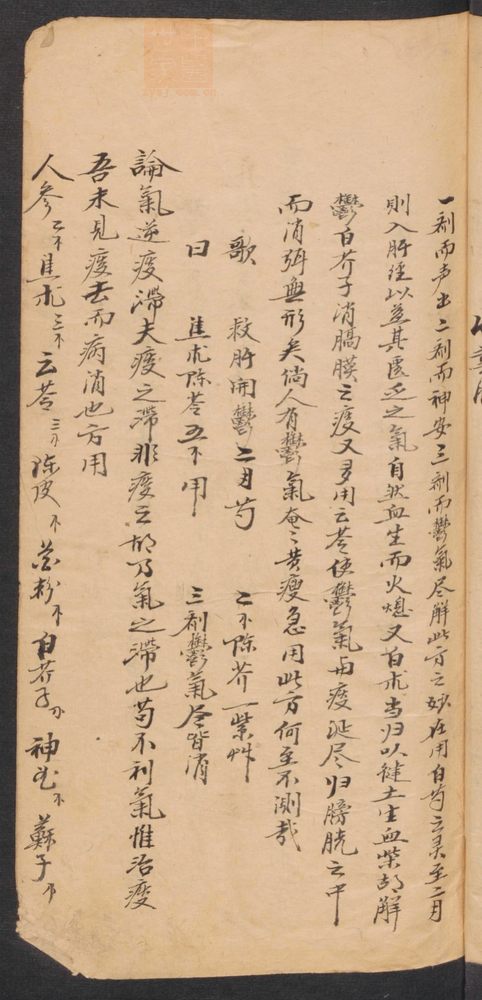 一剤而声出二剤而神安三剤而鬱氣尽解此方之妙在用白芍之灵至二月
則入肝経以益其匮乏之氣自然血生而火熄又白朮当归以健土生血柴胡解
鬱白芥子消膈膜之痰又多用云苓使鬱氣与痰涎尽归膀胱之中
而消弭無形矣倘人有鬱氣奄〻黄瘦急用此方何至不測哉
歌 救肝開鬱二月芍 二不陈芥一柴艸
曰 焦朮陈苓五不用 三剤鬱氣尽皆消
論氣逆痰滞夫痰之滞非痰之故乃氣之滞也苟不利氣惟治痰
吾未見痰去而病消也方用
人參二不焦朮三不云苓三不陈皮不花粉不白芥子不神曲不蘇子不